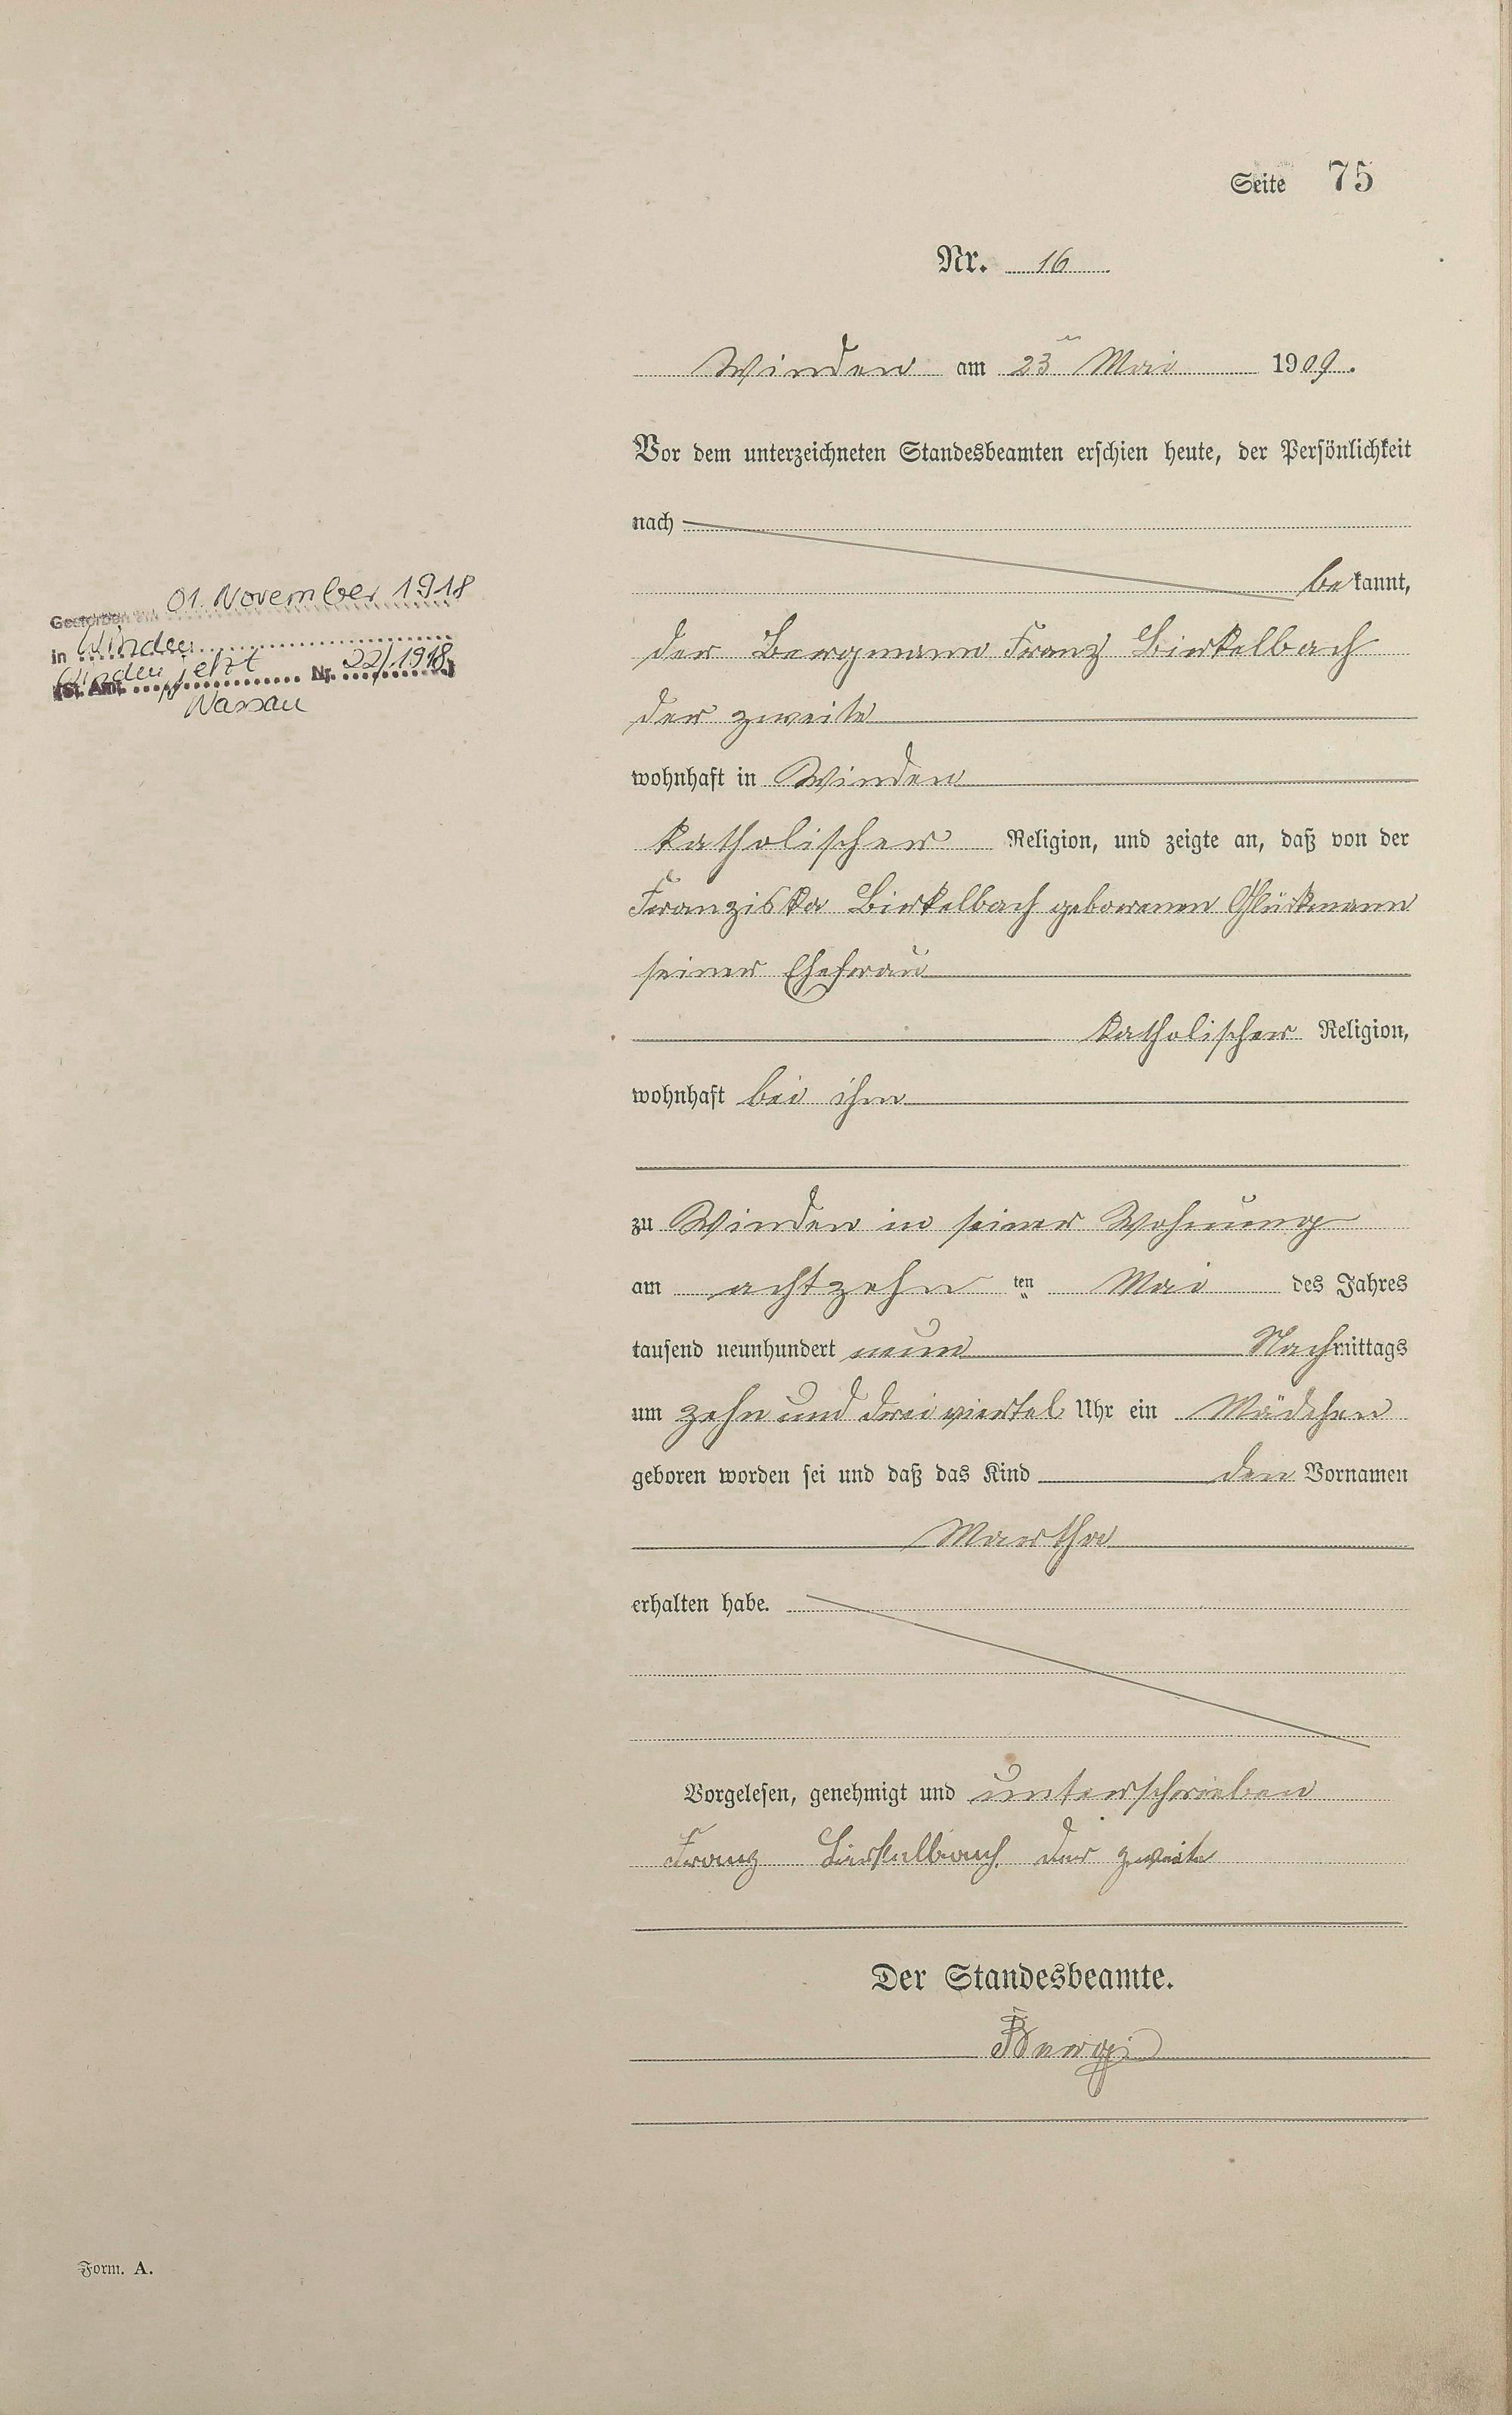 Seite 75
Nr. 16
Winden am 23ten Mai 1909.
Vor dem unterzeichneten Standesbeamten erschien heute, der Persönlichkeit
nach
bekannt,
der Bergmann Franz Birkelbach
der zweite
wohnhaft in Winden
katholischer Religion, und zeigte an, daß von der
Franziska Birkelbach geborenen Glückmann
seiner Ehefrau
katholischer Religion,
wohnhaft bei ihm
zu Winden in seiner Wohnung
am achtzehn ten Mai des Jahres
tausend neunhundert neun Nachmittags
um zehn und drei viertel Uhr ein Mädchen
geboren worden sei und daß das Kind den Vornamen
Martha
erhalten habe.
Vorgelesen, genehmigt und unterschrieben
Franz Birkelbach der zweite
Der Standesbeamte.
Gestorben am 01. November 1918
in Winden
(St. Amt Winden jetzt Nr. 22/1918)
Nassau
Form. A.